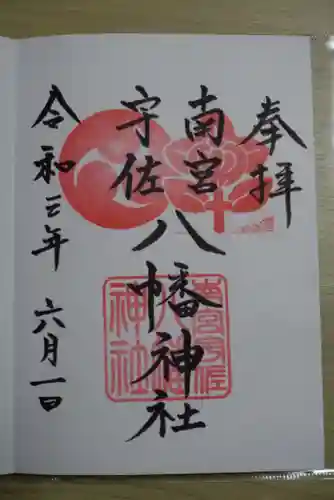 奉拝
南宮
宇佐
八幡神社
令和三年 六月一日
南宮宇佐
八幡
神社